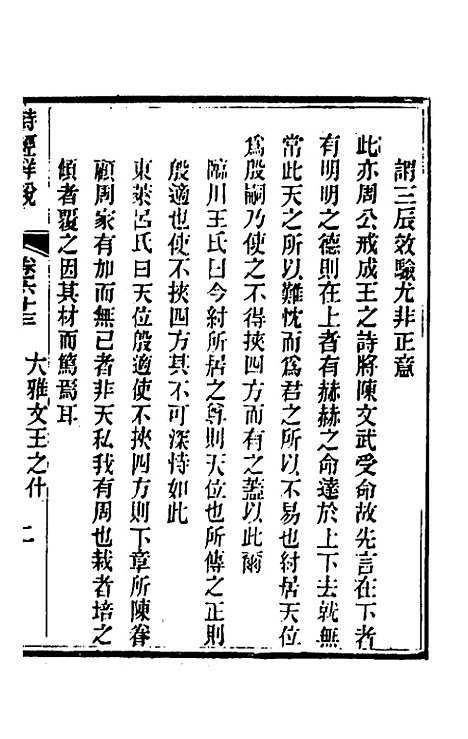 謂三辰效驗尤非正意
此亦周公戒成王之詩將陳文武受命故先言在下者
有明明之德則在上者有赫赫之命達於上下去就無
常此天之所以難忱而爲君之所以不易也紂居天位
爲殷嗣乃使之不得挾四方而有之蓋以此爾
臨川王氏曰今紂所居之尊則天位也所傳之正則
殷適也使不挾四方其不可深恃如此
東萊呂氏曰天位殷適使不挾四方則下章所陳眷
顧周家有加而無已者非天私我有周也栽者培之
傾者覆之因其材而篤焉耳
詩經詳說
卷六十三
大雅文王之什
二